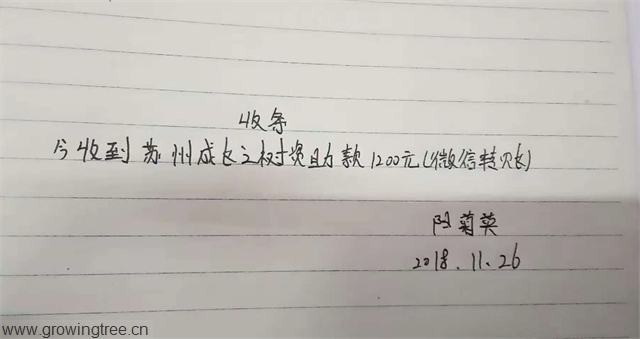 收条
今收到苏州成长之树资助款1200元(微信转账)
阳菊英
2018.11.26
www.growingtree.cn